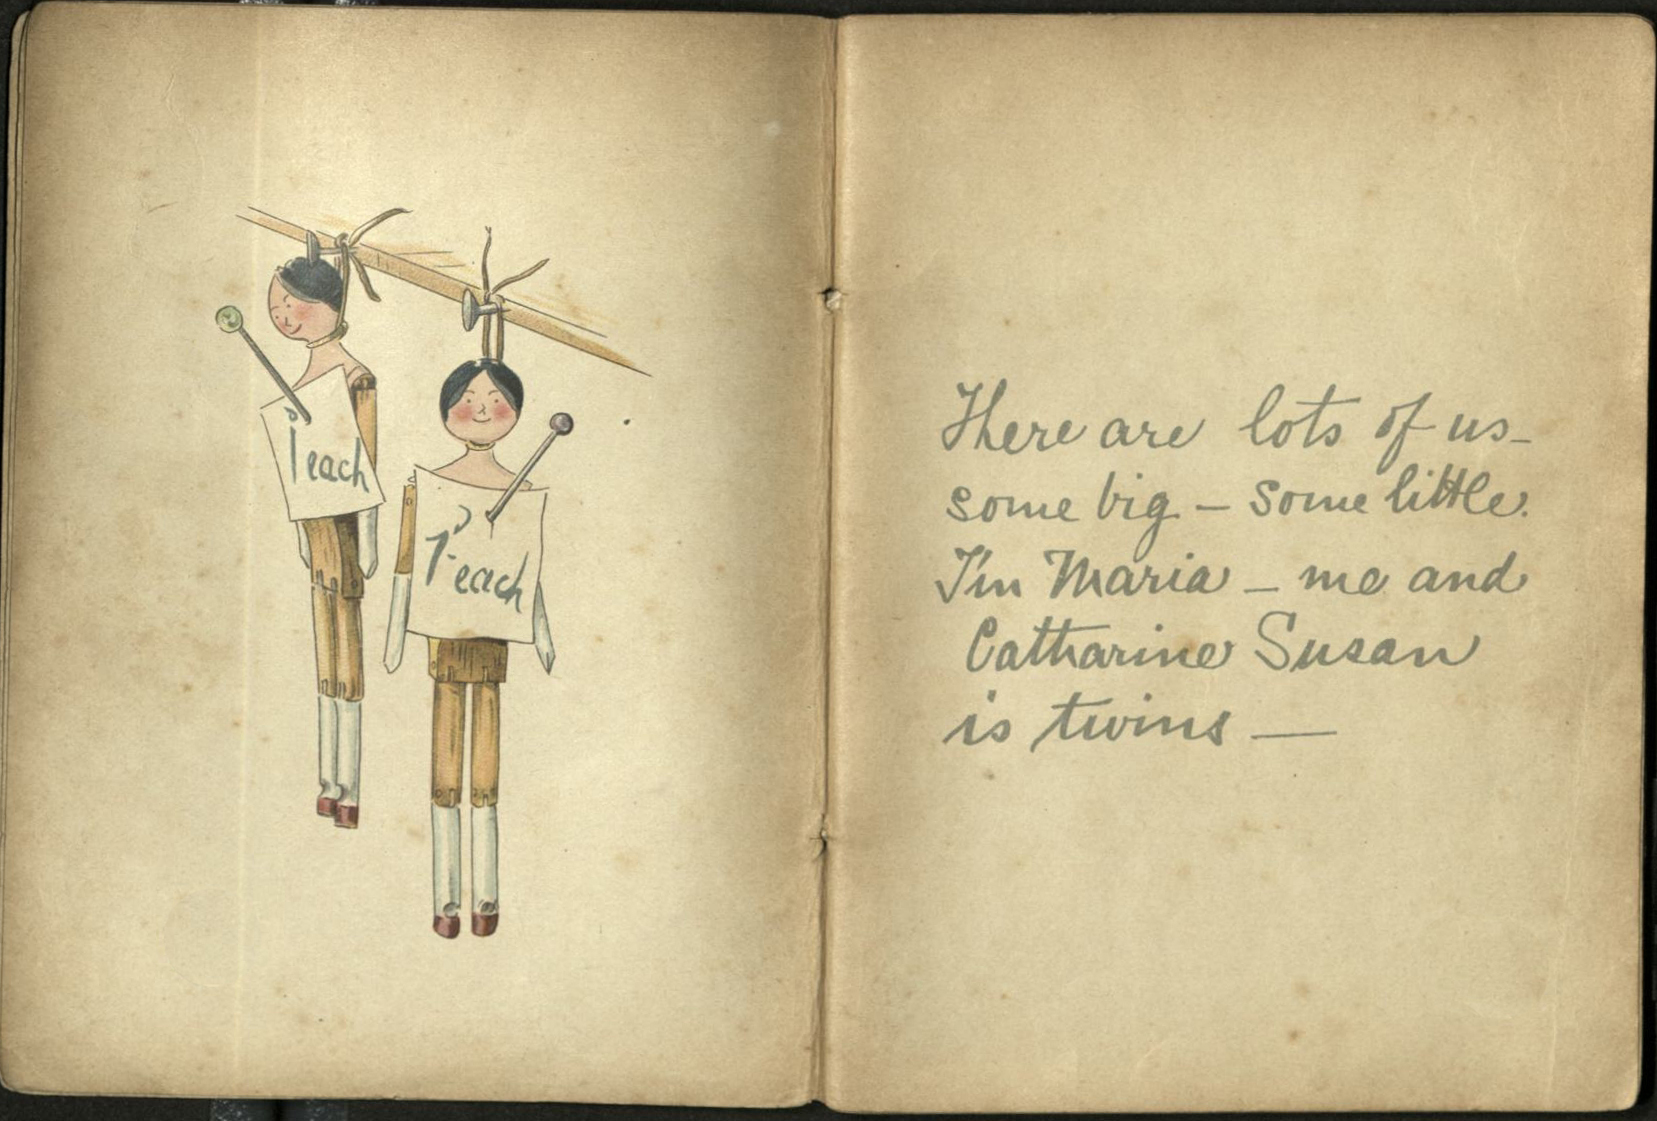 1d each
1d each
There are lots of us-
some big – some little.
I'm Maria – me and
Catharine Susan
is twins —